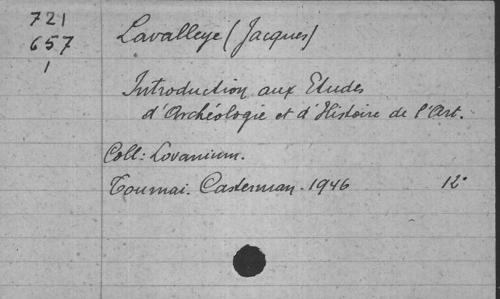 721
657
1
Lavalleye (Jacques)
Introduction aux Etudes
d'Archéologie et d'Histoire de l'Art.
Coll: Lovanium.
Tournai. Casterman. 1946 12°